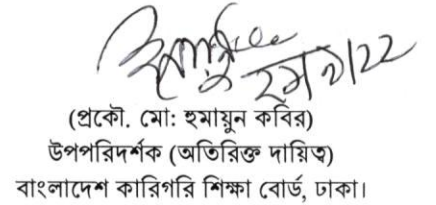 (প্রকৌ. মো: হুমায়ুন কবির)
উপপরিদর্শক (অতিরিক্ত দায়িত্ব)
বাংলাদেশ কারিগরি শিক্ষা বোর্ড, ঢাকা।